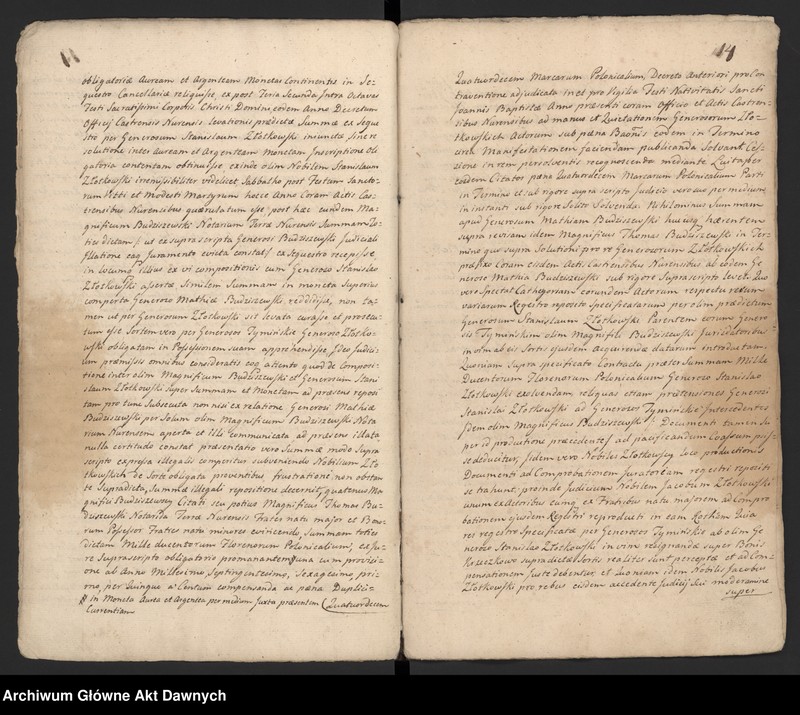 11
obligatoriæ Auream et Argenteam Monetas Continentis in Se-
questro Cancellariæ religiosse, ex post Feria Secunda Intra Octavas
Festi Sacratissimi Corporis Christi Domini eodem Anno Decretum
Officij Castrensis Nurensis levationis prædictæ Summæ ex Seque
stro per Generosum Stanislaum Złotkowski iniunctæ sine re
solutione inter Auream et Argenteam Monetam Inscriptione Obli
gatoria contentam obtinuisse exinde olim Nobilem Stanislaum
Złotkowski irremissibiliter videlicet Sabbatho post Festum Sancto-
rum Viti et Modesti Martyrum hocce Anno Coram Actis Cas-
trensibus Nurensibus quærulatum esse post hæc eundem Ma-
gnificum Budziszewski Notarium Terræ Nurensis Summam To-
ties dictam ut ex supra scripta Generosi Budziszewski Judiciali
illatione eaq Juramento evicta constat ex Sequestro recepisse,
in locumq illius ex vi compositionis cum Generoso Stanislao
Złotkowski asertæ Similem Summam in moneta Superius
comperta Generoso Mathiæ Budziszewski reddidisse, non ta-
men ut per Generosum Złotkowski sit levata curasse et prosecu-
tum esse Sortem vero per Generosos Tymińskie Generoso Złotko-
wski obligatam in Possessionem suam apprehendisse, Ideo Judici-
um præmissis omnibus consideratis eoq attento quod de Composi-
tione inter olim Magnificum Budziszewski et Generosum Stani
slaum Złotkowski Super Summam et Monetam ad præsens reposi
tam pro tunc Subsecuta non nisi ex relatione Generosi Mathiæ
Budziszewski per Solum olim Magnificum Budziszewski Nota
rium Nurensem aperta et Illi communicata ad præsens illata
nulla certitudo constat præsentatio vero Summæ modo Supra
scripto expressa illegalis comperitur subveniendo Nobilium Zło
tkowskich de Sorte obligata prevenibus frustratione non obstan
te Supradicta, Summæ illegali repositione decernit, quatenus Ma
gnifici Budziszewscy Citati seu potius Magnificus Thomas Bu-
dziszewski Notarida Terræ Nurensis Frater natu major et Bono-
rum Possessor Fratres natu minores evincendo, Summam toties
dictam Mille ducentorum Florenorum Polonicalium, ex Ju-
re Suprascripto obligatorio promanantem una cum provisio-
ne ab Anno Millesimo, Septingentesimo, Sexagesimo pri-
mo, per Quinque a Centum compensanda ac pœna Duplili-
in Moneta Aurea et Argentea per medium Juxta præsentem Quatuordecem
Currentiam
14
Quatuordecem Marcarum Polonicalium, Decreto Anteriori pro Con
traventione adjudicata in et pro Vigilia Festi Nativitatis Sancti
Joannis Baptistæ Anno præsenti coram Officio et Actis Castren-
sibus Nurensibus ad manus et Quietationem Generosorum Zło-
tkowskich Actorum sub pœna Banis eodem in Termino
circa Manifestationem faciendam publicanda Solvant Ces-
sionem rem persolventis recognoscendo mediante Luitaque
eædem Citatos pœna Quatuordecem Marcarum Polonicalium Parti
in Termino et sub rigore supra scripto Judicio vero uæ per medium
in instanti sub rigore Solito Solvenda. Nihilominus Summam
apud Generosum Mathiam Budziszewski hucusq hærentem
supra revisam idem Magnificus Thomas Budziszewski in Ter-
mino quo Supra Solutioni pro re Generosorum Złotkowskich
præfixo Coram eisdem Actis Castrensibus Nurensibus ab eodem Ge
neroso Mathia Budziszewski sub rigore Suprascripto levet. Quo
vero Spectat Cathegoriam eorundem Actorum respectu rerum
variarum Regestro reposito Specificatarum per olim prædictum
Generosum Stanislaum Złotkowski Parentem eorum Genero
sis Tymińskim olim Magnifici Budziszewski Juriidatoribus
in vim ab eis Sortis ejusdem Acquirendæ datarum introductam.
Quoniam Supra specificato Contractu præter Summam Mille
Ducentorum Florenorum Polonicalium Generoso Stanislao
Złotkowski exsolvendam, reliquas etiam prætensiones Generosi
Stanislai Złotkowski ad Generosos Tymińskie Intercedentes
Idem olim Magnificus Budziszewski Documenti tamen Su-
per id productione præcedente ad pacificandum Coassumpsis-
se deducitur, Idem vero Nobiles Złotkowscy loco productionis
Documenti ad Comprobationem Juratoriam regestri repositi
se trahunt, proinde Judicium Nobilem Jacobum Złotkowski
unum ex Actoribus eumq ex Fratribus natu majorem ad Compro
bationem ejusdem Regestri reproducti in eam Rotham Quia
res regestro Specificatæ per Generosos Tymińskie ab olim Ge
neroso Stanislao Złotkowski in vim resignandæ super Bonis
Kruczkowo supradictæ Sortis realiter sunt perceptæ et ad Com-
pensationem juste debentur, et Quoniam idem Nobilis Jacobus
Złotkowski pro rebus eisdem accedente Judicij Sui moderamine
super
Archiwum Główne Akt Dawnych